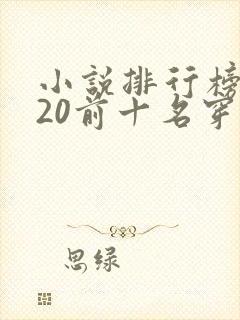 小説排行榜
20前十名穿
思绿